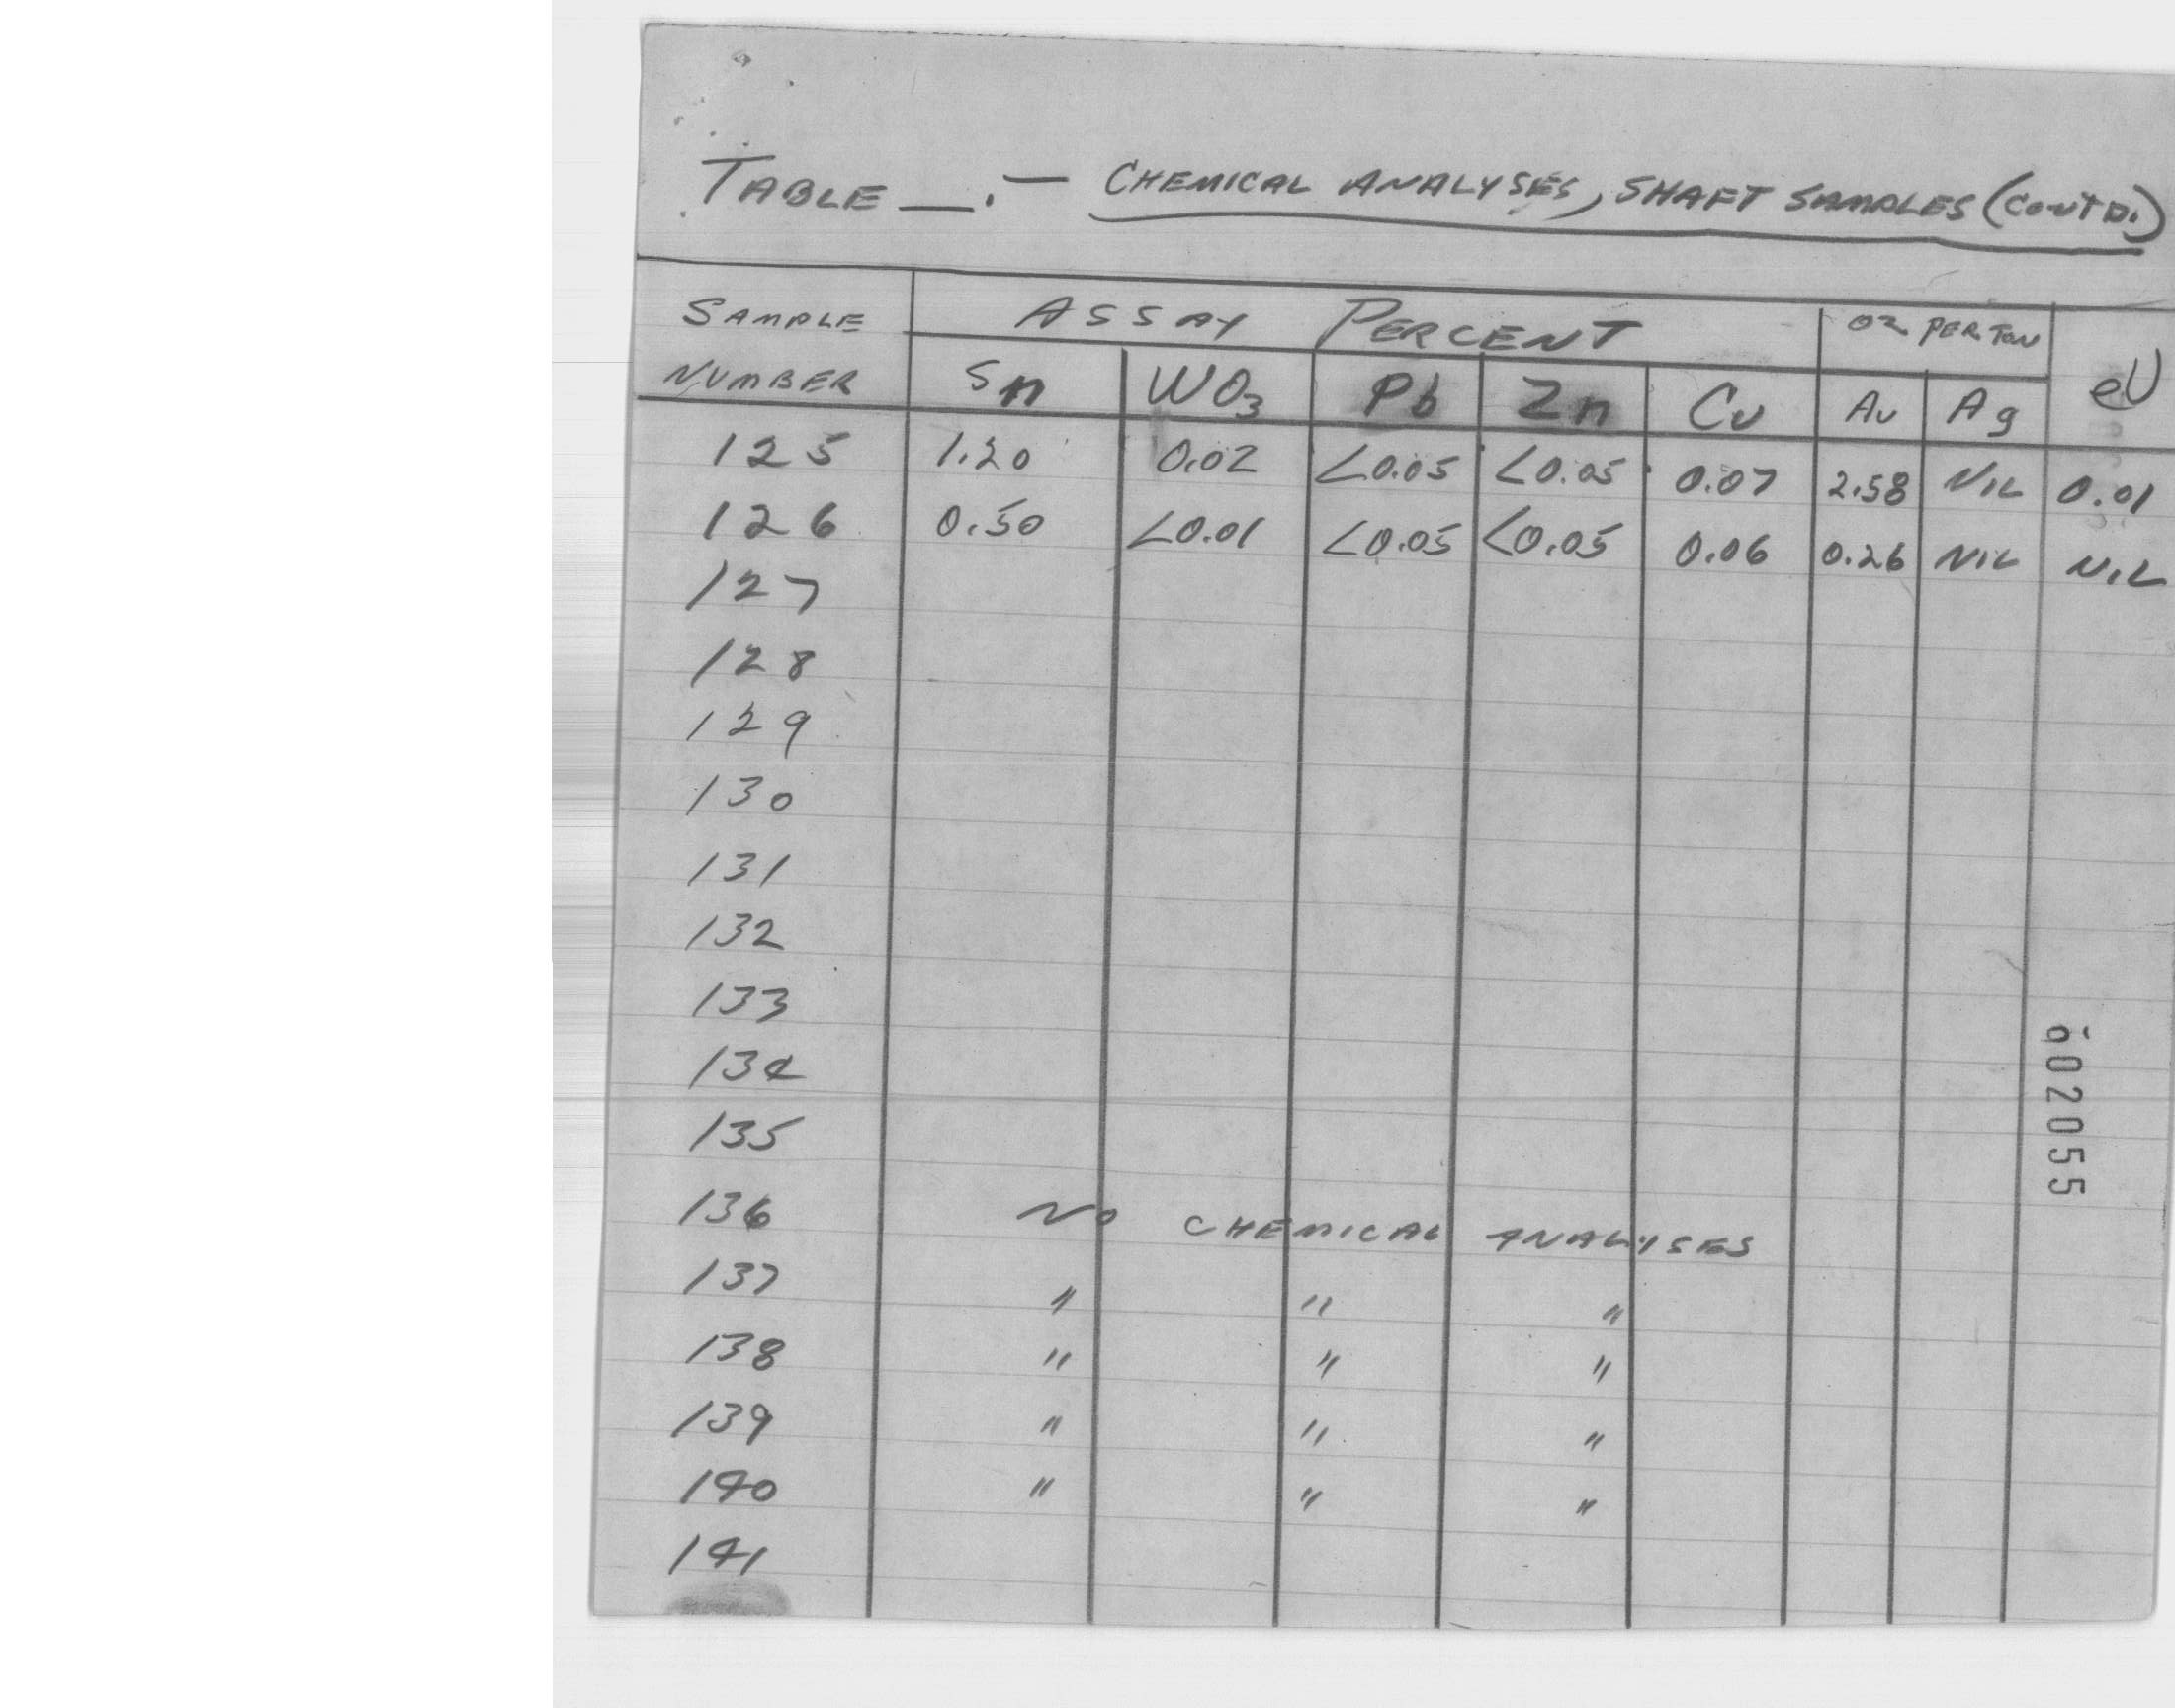 TABLE __.— CHEMICAL ANALYSES, SHAFT SAMPLES (CONTD.)
SAMPLE NUMBER ASSAY PERCENT OZ PER TON eU
Sn WO3 Pb Zn Cu Au Ag
125 1.20 0.02 <0.05 <0.05 0.07 2.58 NIL 0.01
126 0.50 <0.01 <0.05 <0.05 0.06 0.26 NIL NIL
127
128
129
130
131
132
133
134
135
136 NO CHEMICAL ANALYSES
137 " " "
138 " " "
139 " " "
140 " " "
141
602055